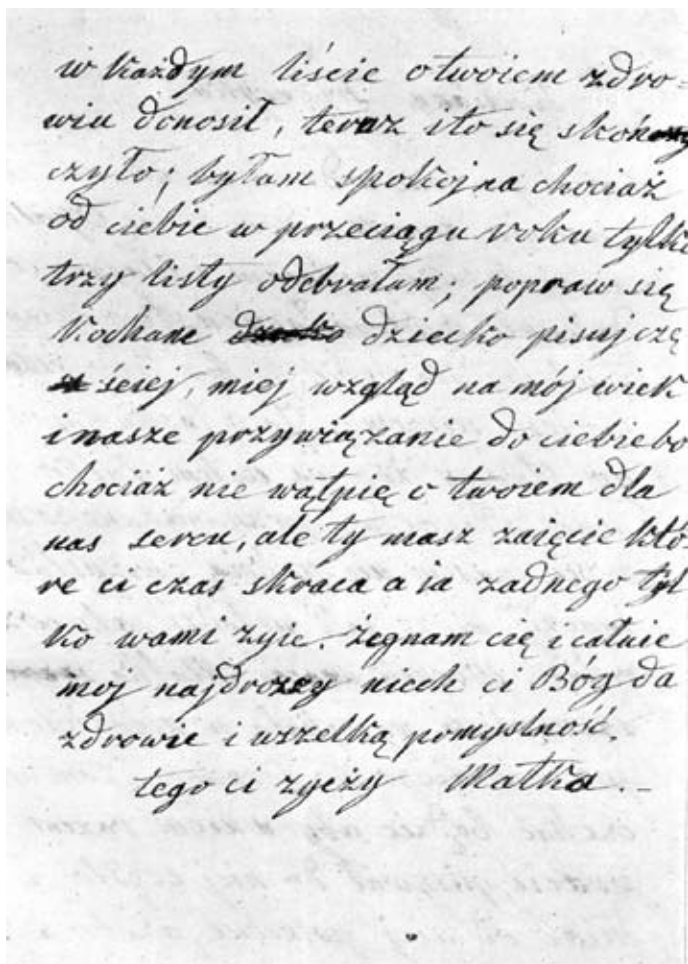 w każdym liście o twoiem zdro=
wiu donosił, teraz i to się skoń
czyło; byłam spokojna chociaż
od ciebie w przeciągu roku tylko
trzy listy odebrałam; popraw się
kochane dziecko pisuj czę
ściej, miej wzgląd na mój wiek
i nasze przywiązanie do ciebie bo
chociaż nie wątpię o twoiem dla
nas sercu, ale ty masz zaięcie któ-
re ci czas skraca a ia żadnego tyl
ko wami zyie. żegnam cię i całuie
moj najdrozszy niech ci Bóg da
zdrowie i wszelką pomyslność.
tego ci zyczy Matka.-